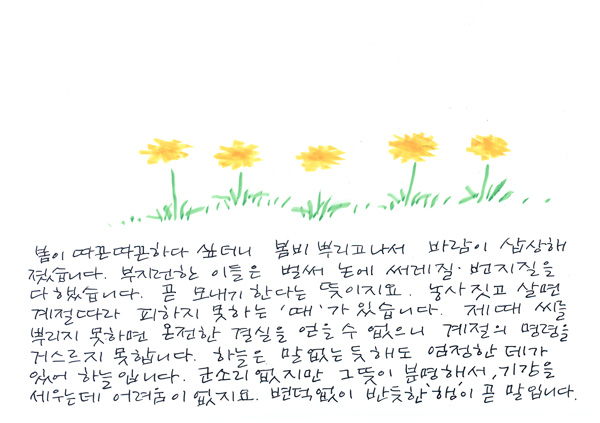 봄이 따끈따끈하다 싶더니 봄비 뿌리고나서 바람이 삽상해
졌습니다. 부지런한 이들은 벌써 논에 써레질·번지질을
다했습니다. 곧 모내기한다는 뜻이지요. 농사짓고 살면
계절따라 피하지 못하는 '때'가 있습니다. 제때 씨를
뿌리지 못하면 온전한 결실을 얻을 수 없으니 계절의 명령을
거스르지 못합니다. 하늘은 말없는듯해도 엄정한 데가
있어 하늘입니다. 군소리없지만 그뜻이 분명해서, 기강을
세우는데 어려움이 없지요. 변덕없이 반듯한 '행'이 곧 말입니다.